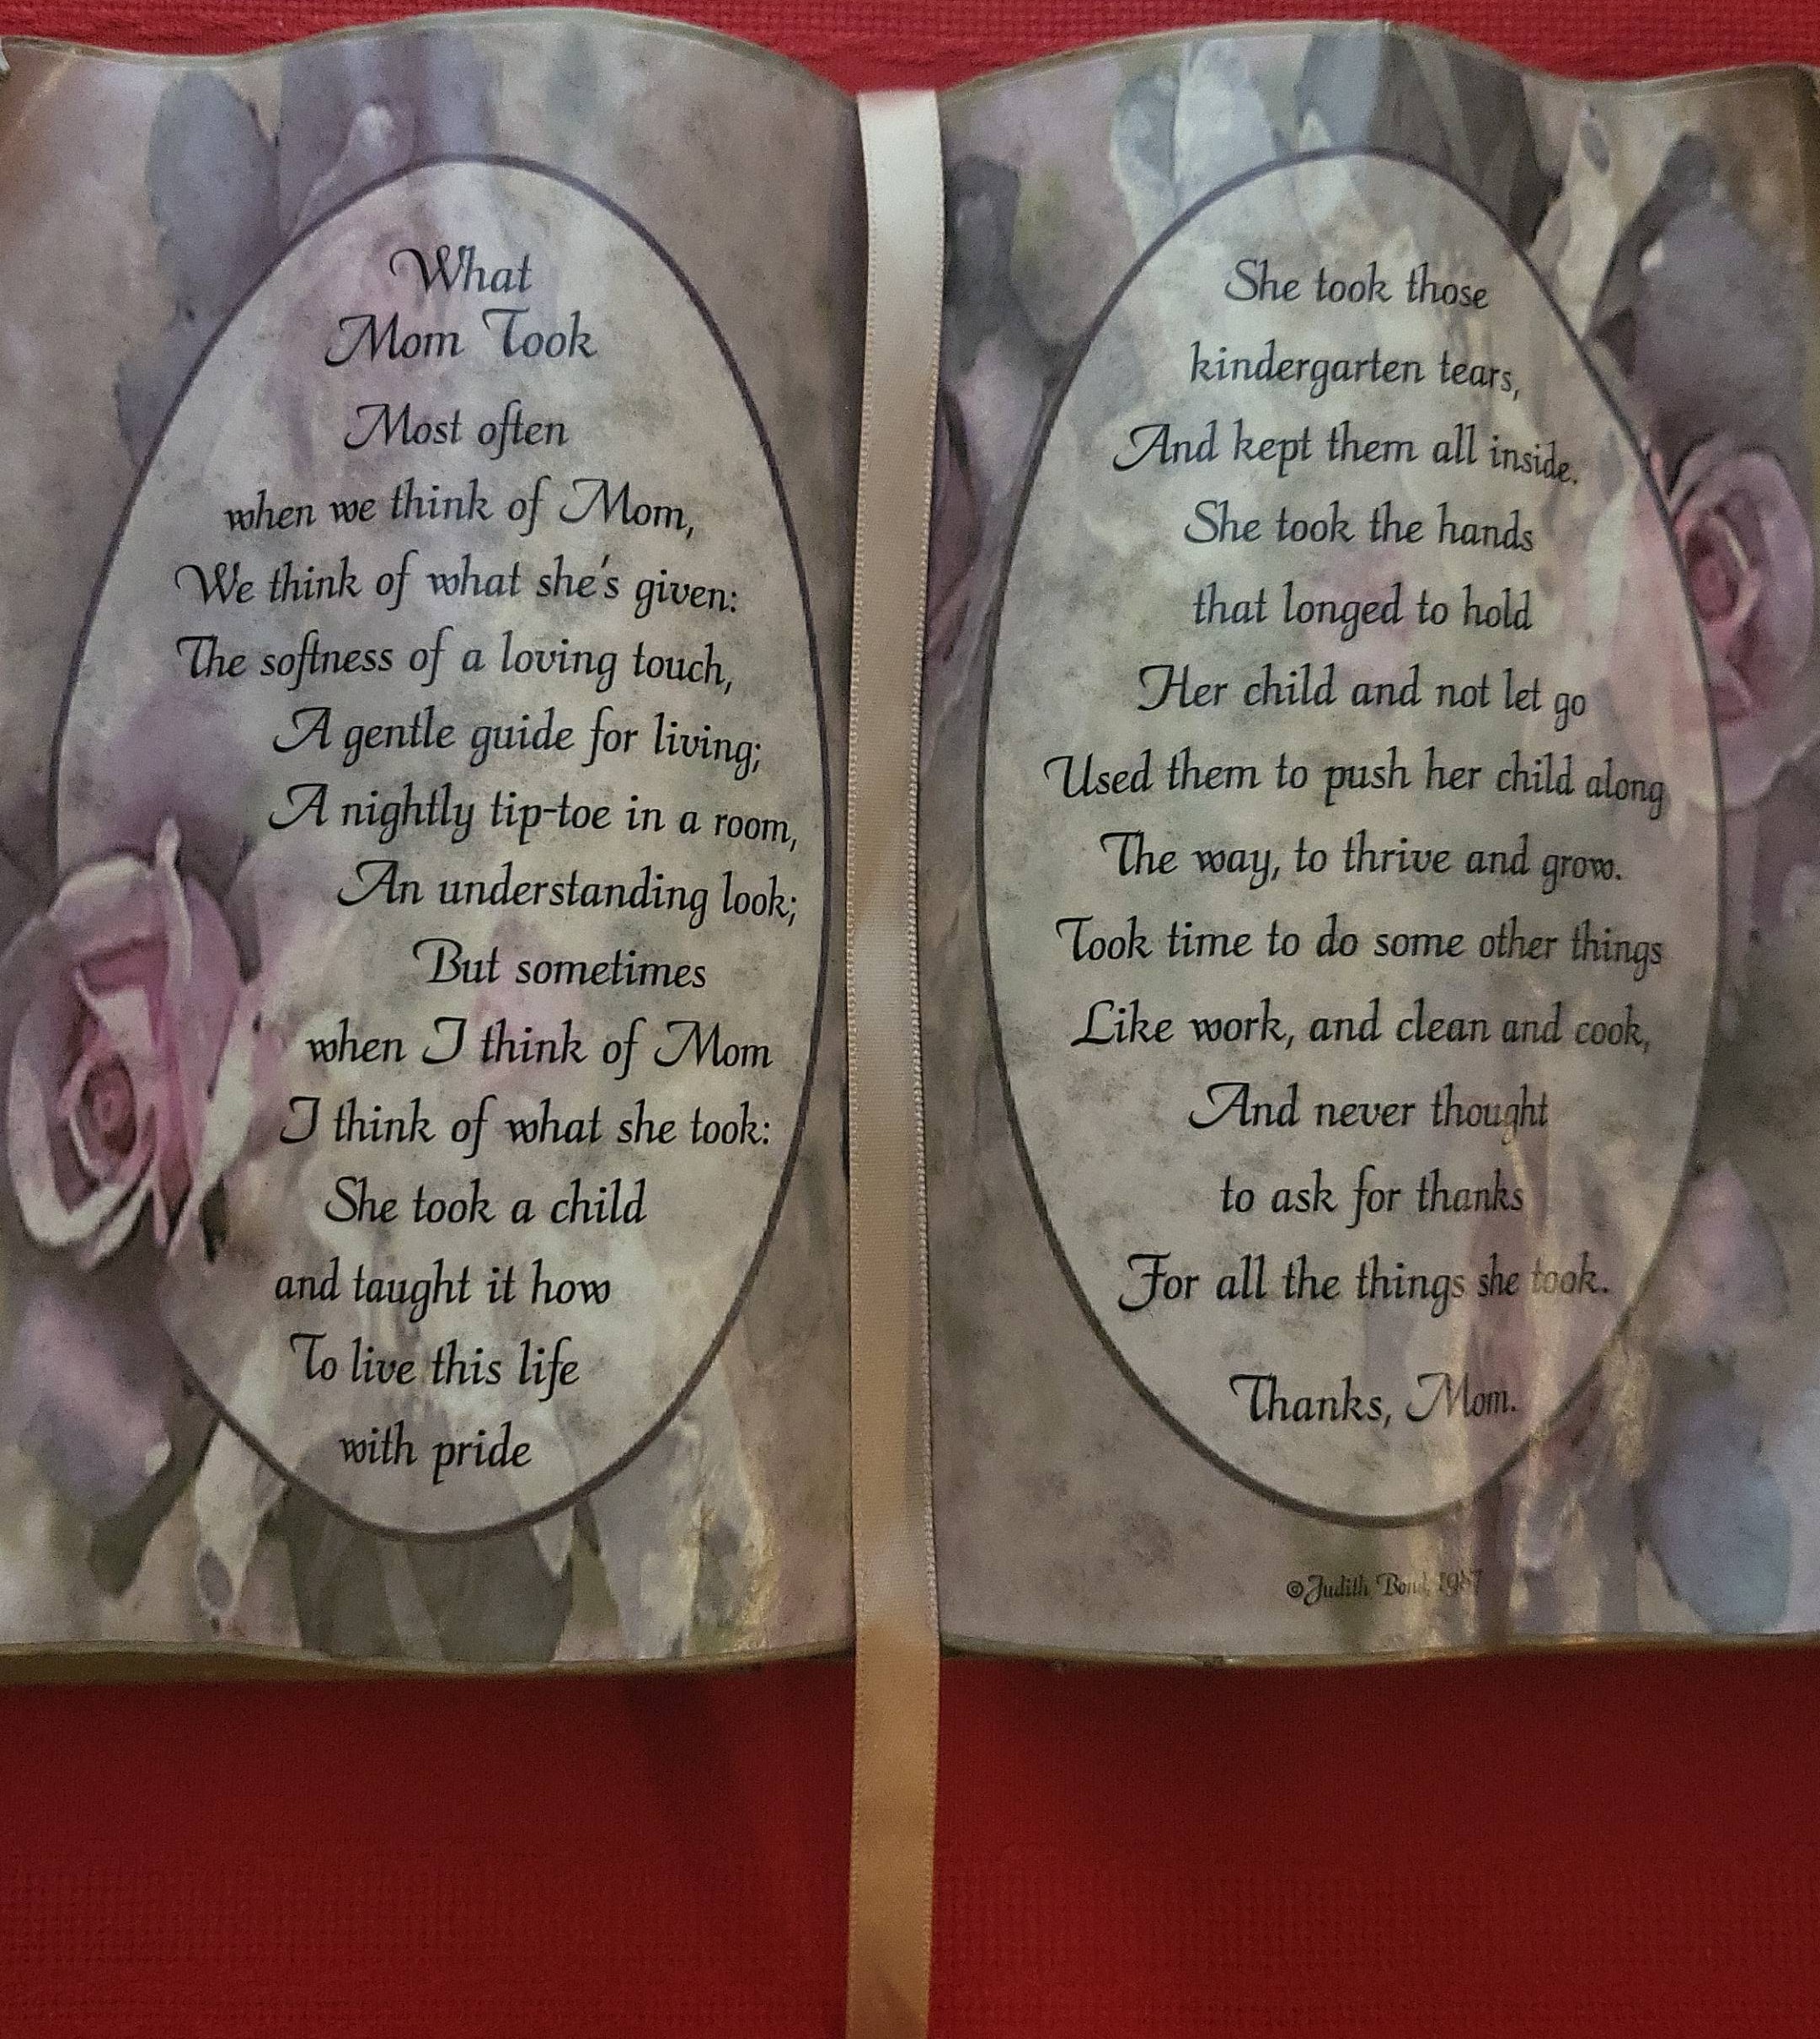 What
Mom Took
Most often
when we think of Mom,
We think of what she's given:
The softness of a loving touch,
A gentle guide for living;
A nightly tip-toe in a room,
An understanding look;
But sometimes
when I think of Mom
I think of what she took:
She took a child
and taught it how
To live this life
with pride
She took those
kindergarten tears,
And kept them all inside.
She took the hands
that longed to hold
Her child and not let go
Used them to push her child along
The way, to thrive and grow.
Took time to do some other things
Like work, and clean and cook,
And never thought
to ask for thanks
For all the things she took.
Thanks, Mom.
©Judith Bond, 1987